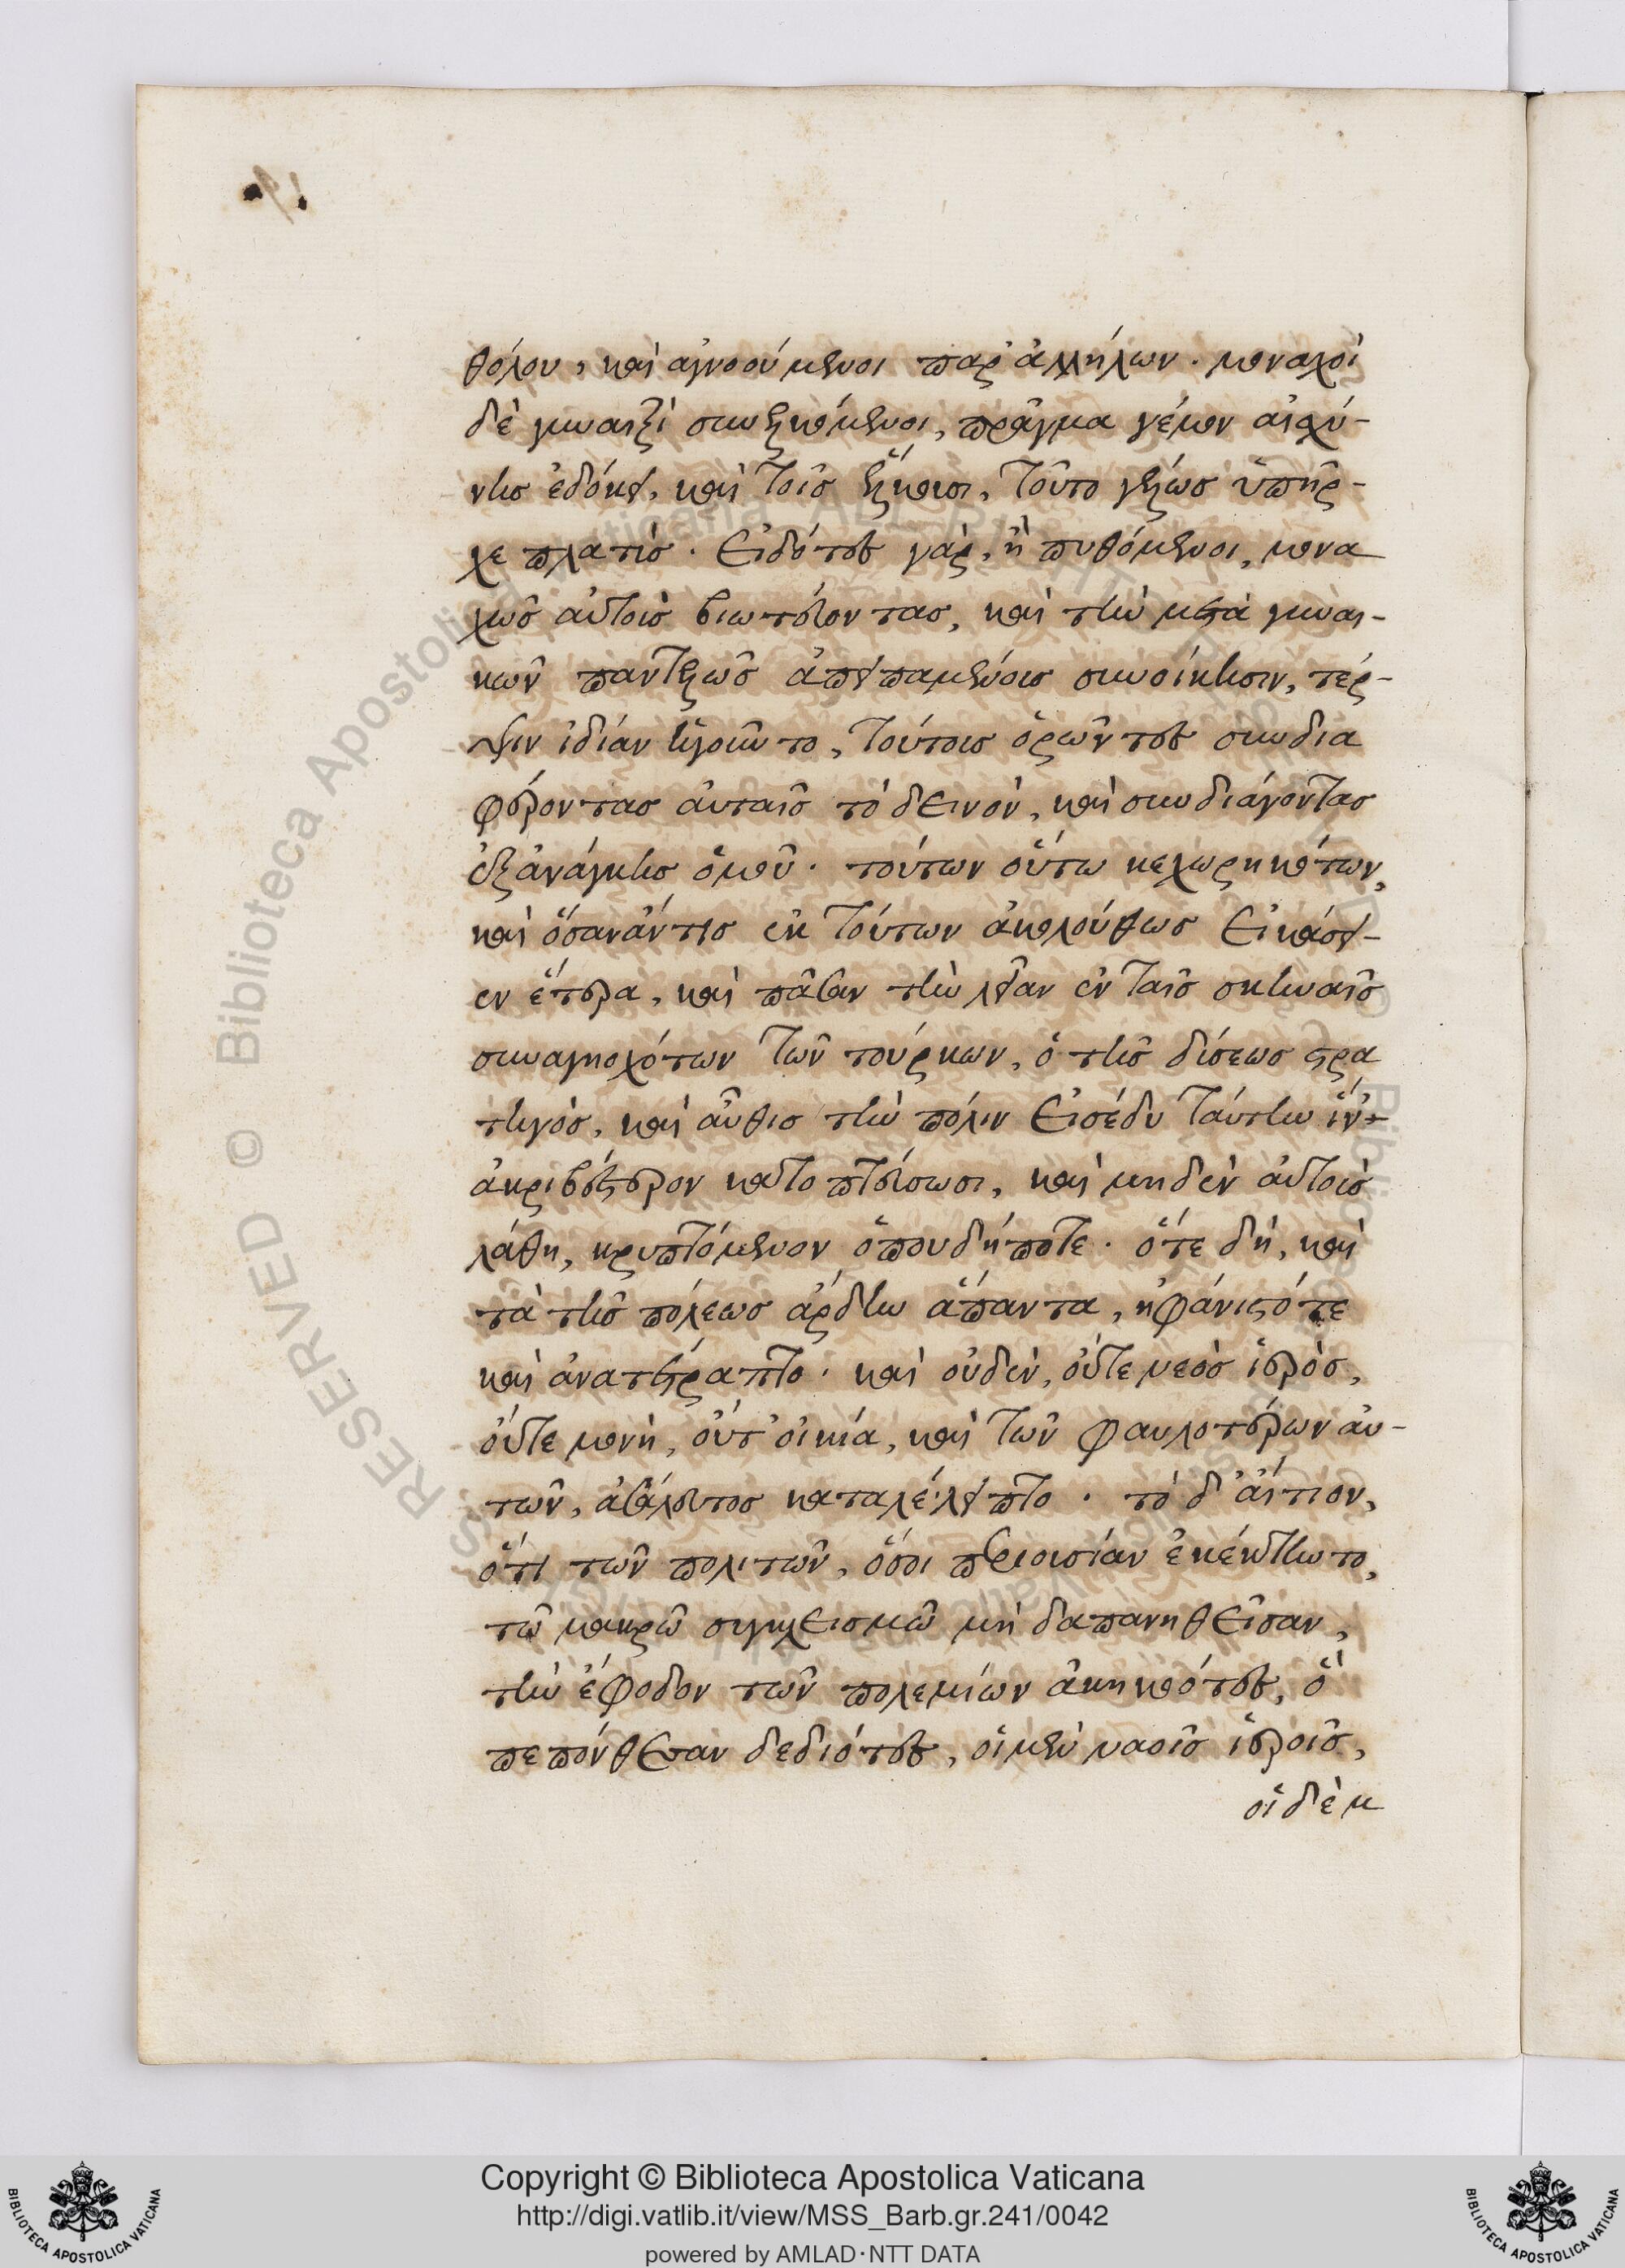 θόλου, καὶ ἀγνοούμενοι παρ' ἀλλήλων. μοναχοὶ
δὲ γυναιξὶ συνεζευγμένοι, πρᾶγμα γέμον αἰσχύ-
νης ἐδόκει, καὶ τοῖς τούτο γελίως ὑπῆρ-
χε πλατὺς. εἰδότες γὰρ, ἢ πυθόμενοι, μονα
χῶς αὐτοὺς βιωτεύοντας, καὶ τὴν μετὰ γυναι-
κῶν παντελῶς ἀπειπαμένους συνοίκησιν, τέρ-
ψιν ἰδίαν ἡγοῦντο, τούτους ὁρῶντες συνδια
φέροντας αὐταῖς τὸ δεινὸν, καὶ συνδιάγοντας
ἐξανάγκης ὁμοῦ. τούτων οὕτω κεχωρηκότων,
καὶ ὅσανάντις ἐκ τούτων ἀκολούθως εἰκάσει-
εν ἕτερα, καὶ πᾶσαν τὴν λείαν ἐν ταῖς σκηναῖς
συναγηοχότων τῶν τούρκων, ὁ τῆς δύσεως στρα
τηγὸς, καὶ αὖθις τὴν πόλιν εἰσέδυ ταύτην ἵν'
ἀκριβέστερον κατοπτεύσωσι, καὶ μηδὲν αὐτοὺς
λάθη, κρυπτόμενον ὁπουδήποτε. ὅτε δὴ, καὶ
τὰ τῆς πόλεως ἄρδην ἅπαντα, ἠφάνιστό τε
καὶ ἀνατέτραπτο. καὶ οὐδὲν, οὔτε νεὸς ἱερὸς,
οὔτε μονὴ, οὔτ' οἰκία, καὶ τῶν φαυλοτέρων αὐ-
τῶν, ἀσάλευτος καταλέλειπτο. τὸ δ' αἴτιον,
ὅτι τῶν πολιτῶν, ὅσοι περιουσίαν ἐκέκτηντο,
τῶ μακρῶ συγκλεισμῶ μὴ δαπανηθεῖσαν,
τὴν ἔφοδον τῶν πολεμίων ἀκηκοότες, ὃ
πεπόνθεσαν δεδιότες, οἱ μὲν ναοῖς ἱεροῖς,
οἱ δὲ κ
Copyright © Biblioteca Apostolica Vaticana
http://digi.vatlib.it/view/MSS_Barb.gr.241/0042
powered by AMLAD·NTT DATA